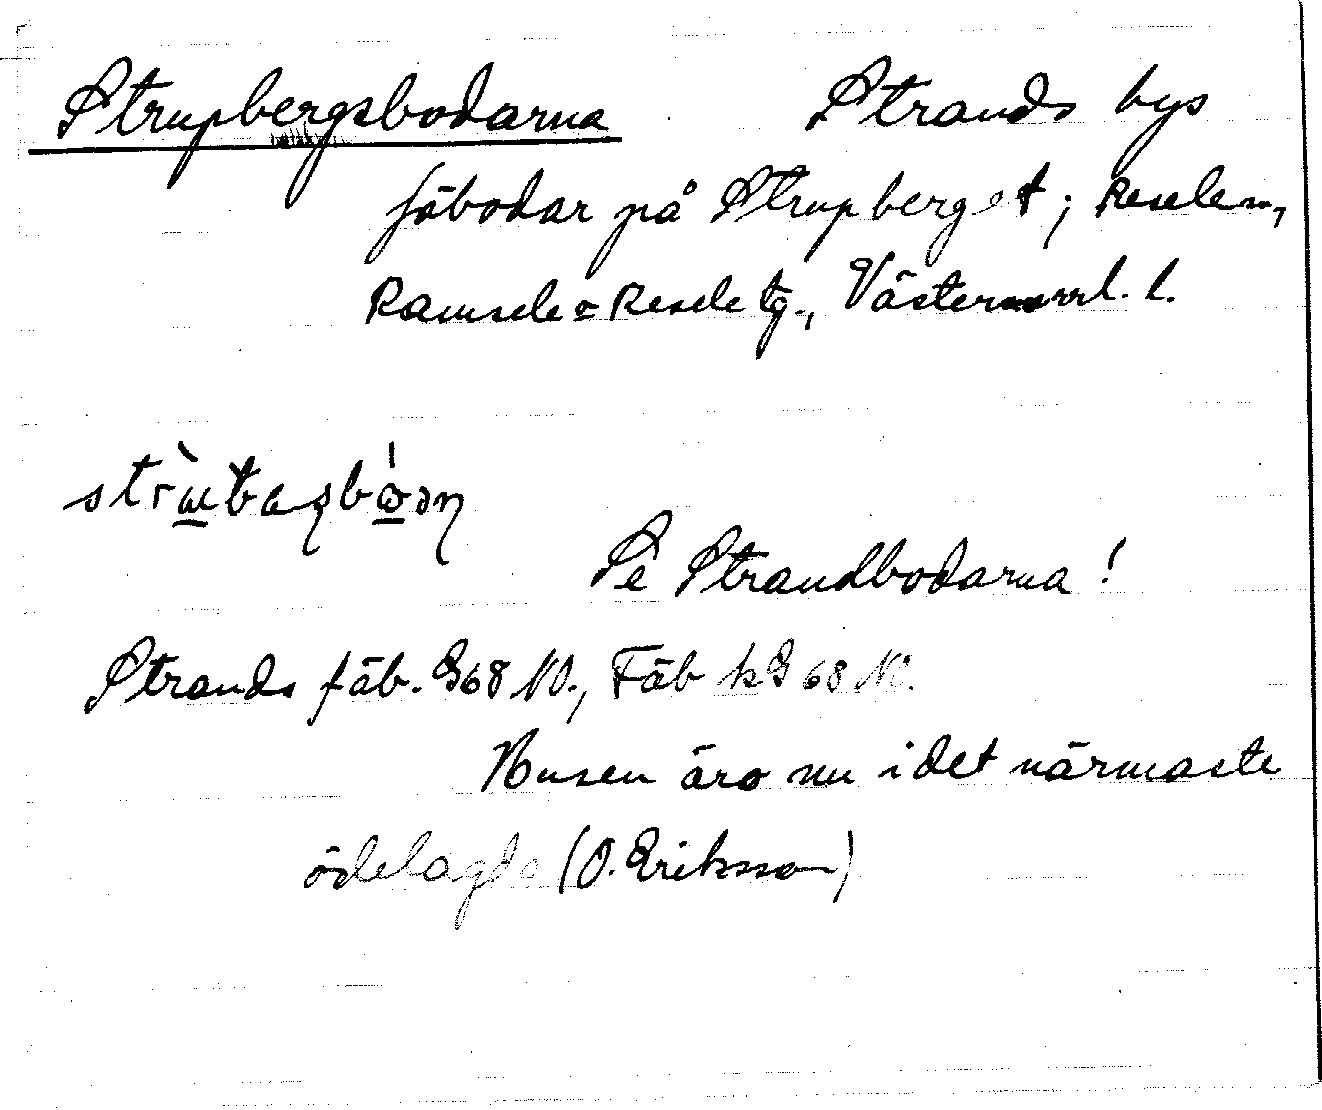 Strupbergsbodarna Strands bys
fäbodar på Strupberget; Resele sn,
Ramsele o Resele tg., Västernorrl. l.
Se Strandbodarna!
Strands fäb. G68 NV., Fäb kG 68 NV.
Husen äro nu i det närmaste
ödelagda (O. Eriksson)